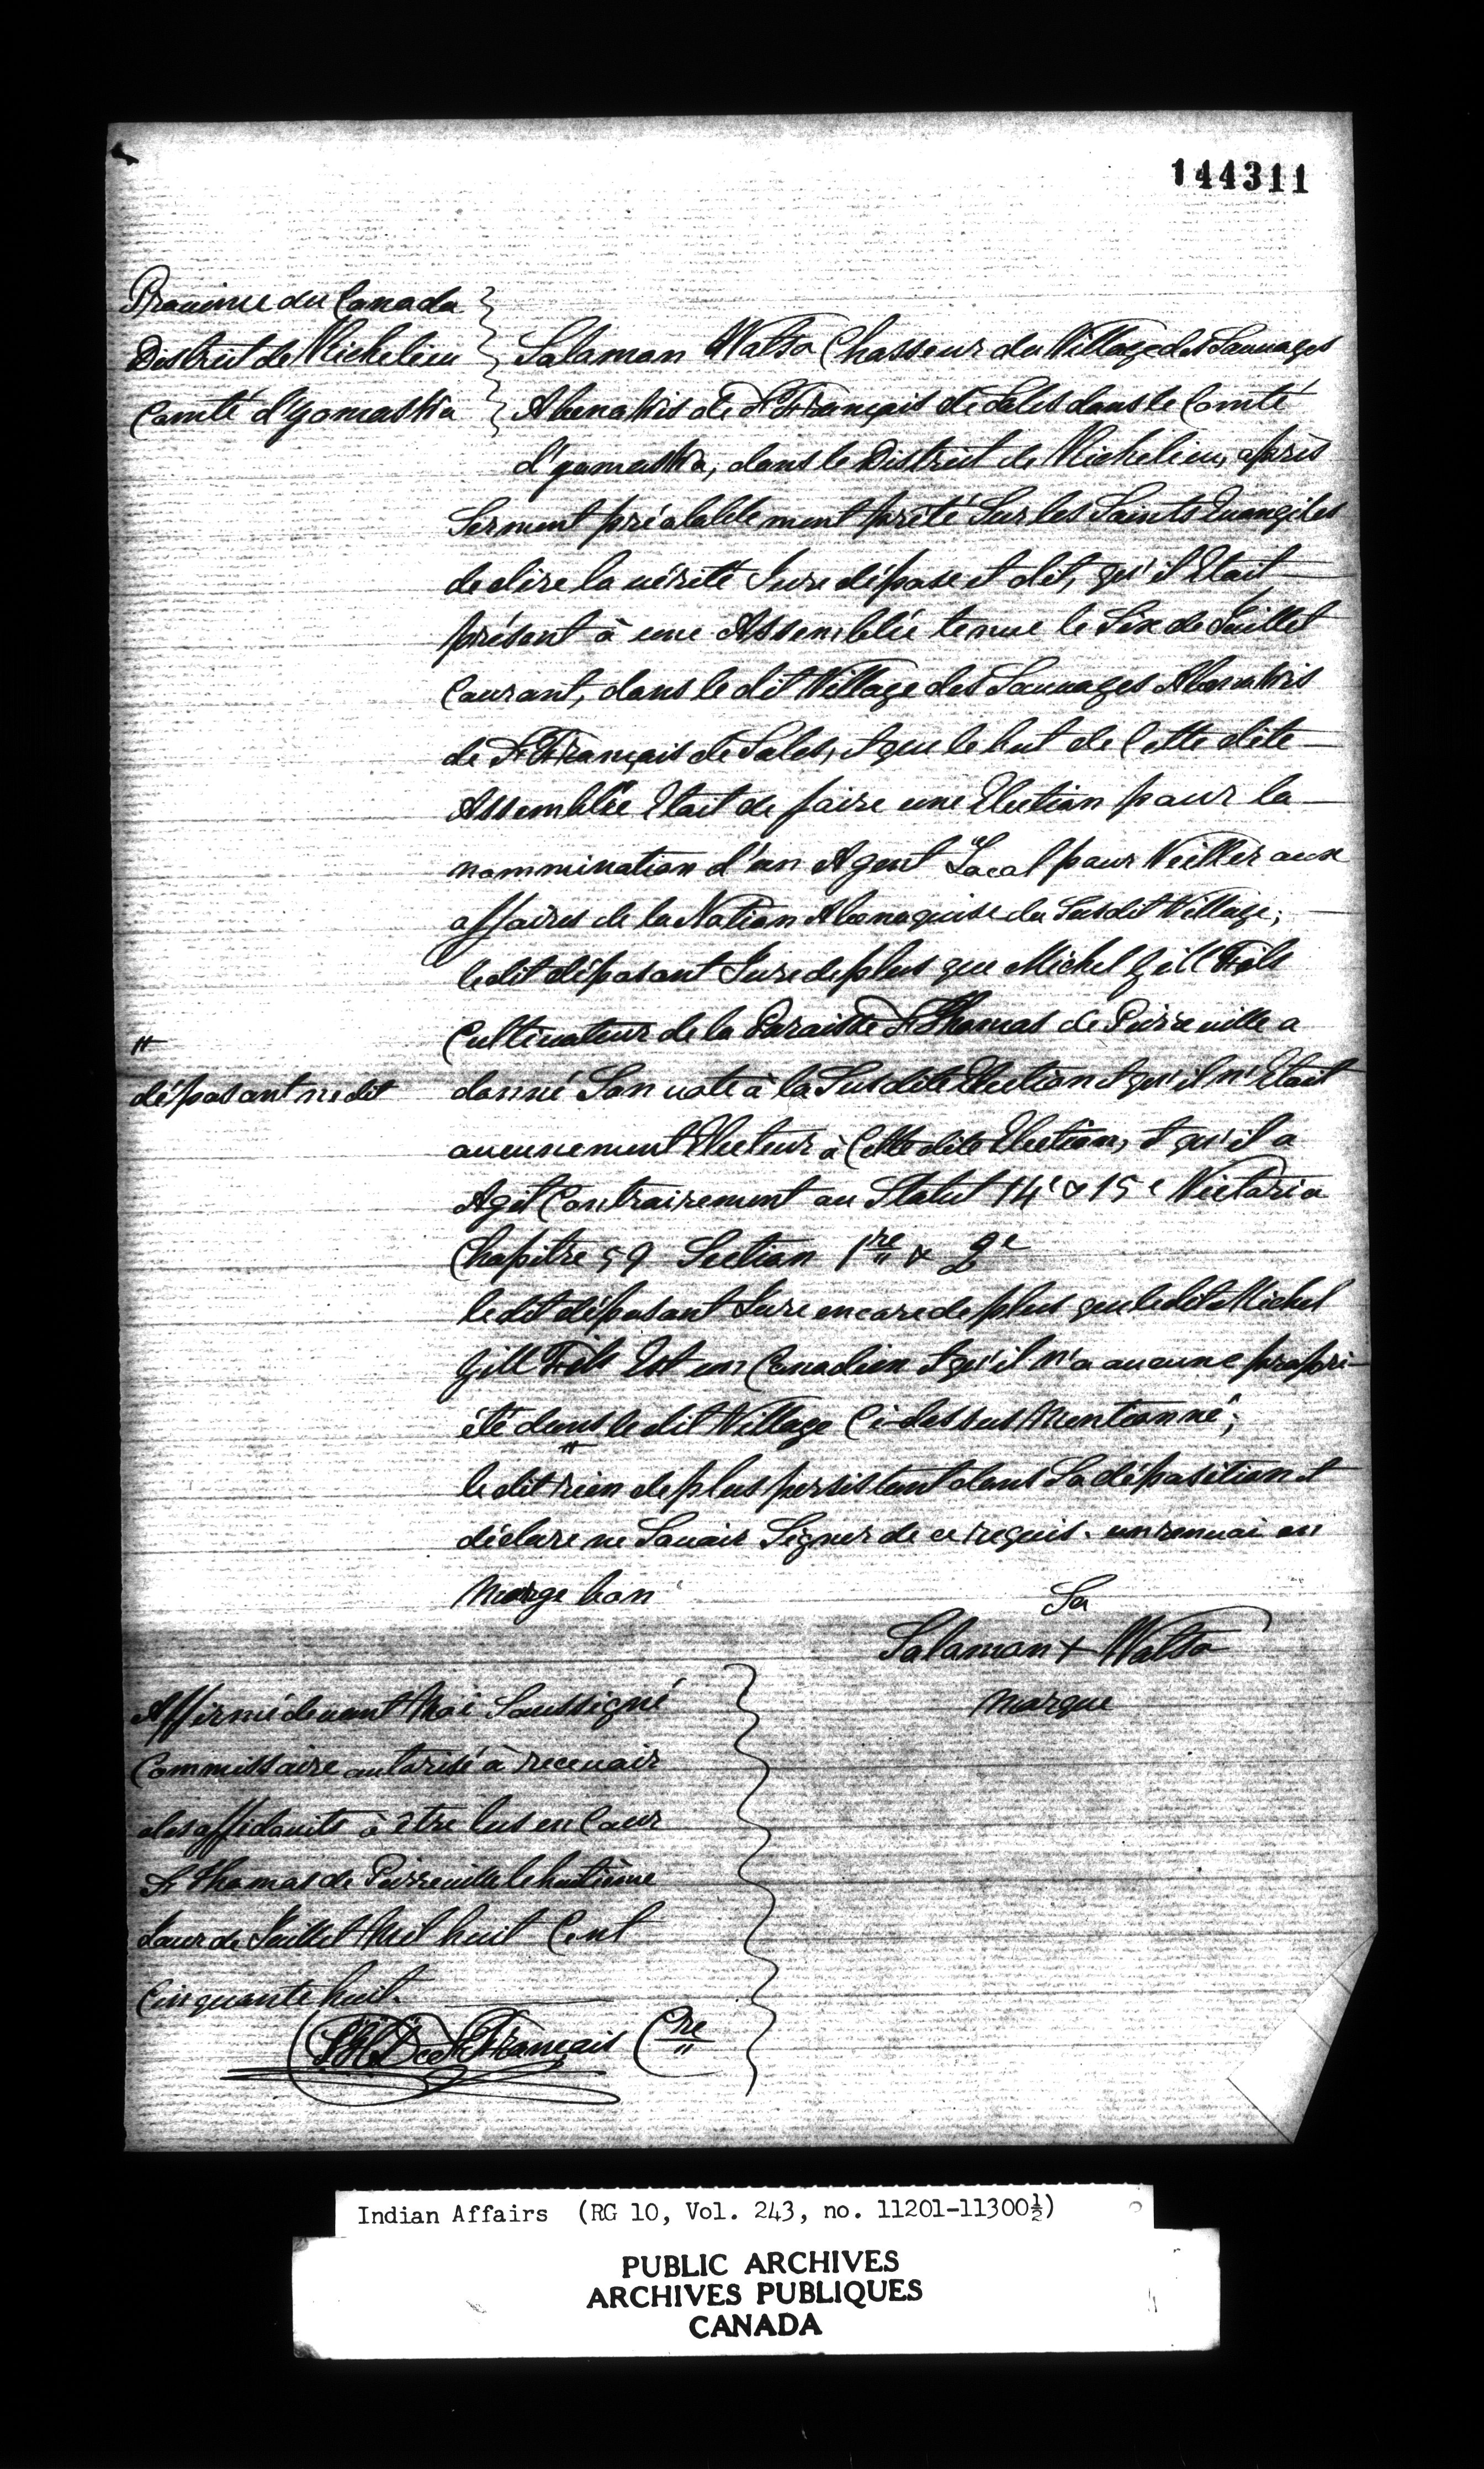 144311
Province du Canada
District de Michelieu
Comté d'yamaska
Salaman Watso Chasseur du Village des Sauvages
Abenakis de St François de Sales dans le Comté
d'yamaska, dans le District de Richelieu, après
Serment préalablement prêté Sur les Saints Evangiles
de dire la vérité Jure dépose et dit, qu'il Etait
présent à une Assemblée tenue le Six de Juillet
Courant, dans le dit Village des Sauvages Abenakis
de St François de Sales, et que le but de Cette dite
Assemblée Etait de faire une Election pour la
nommination d'un Agent Local pour Veiller aux
affaires de la Nation Abenaquise du Susdit Village;
le dit déposant Jure de plus que Michel Gill Fils
Cultivateur de la Paroisse St Thomas de Pierreville a
donné Son vote à la Susdite Election et qu'il n'Etait
aucunement Electeur à Cette dite Election, et qu'il a
Agit Contrairement au Statut 14e & 15e Victoria
Chapitre 59 Section 1re & 2e
le dit déposant Jure encore de plus que le dit Michel
Gill Fils Est un Canadien et qu'il n'a aucune propri-
été dans le dit Village Ci-dessus Mentionné;
le dit rien de plus persistant dans Sa déposition et
déclare ne Savoir Signer de ce requis. un renvoi en
Marge bon
déposant ne dit
Sa
Salaman + Watso
marque
Affirmé devant Moi Soussigné
Commissaire autorisé à recevoir
des affidavits à être lus en Cour
St Thomas de Pierreville le huitième
Jour de Juillet Mil huit Cent
Cinquante huit.
St François Cre
Indian Affairs (RG 10, Vol. 243, no. 11201-11300½)
PUBLIC ARCHIVES
ARCHIVES PUBLIQUES
CANADA